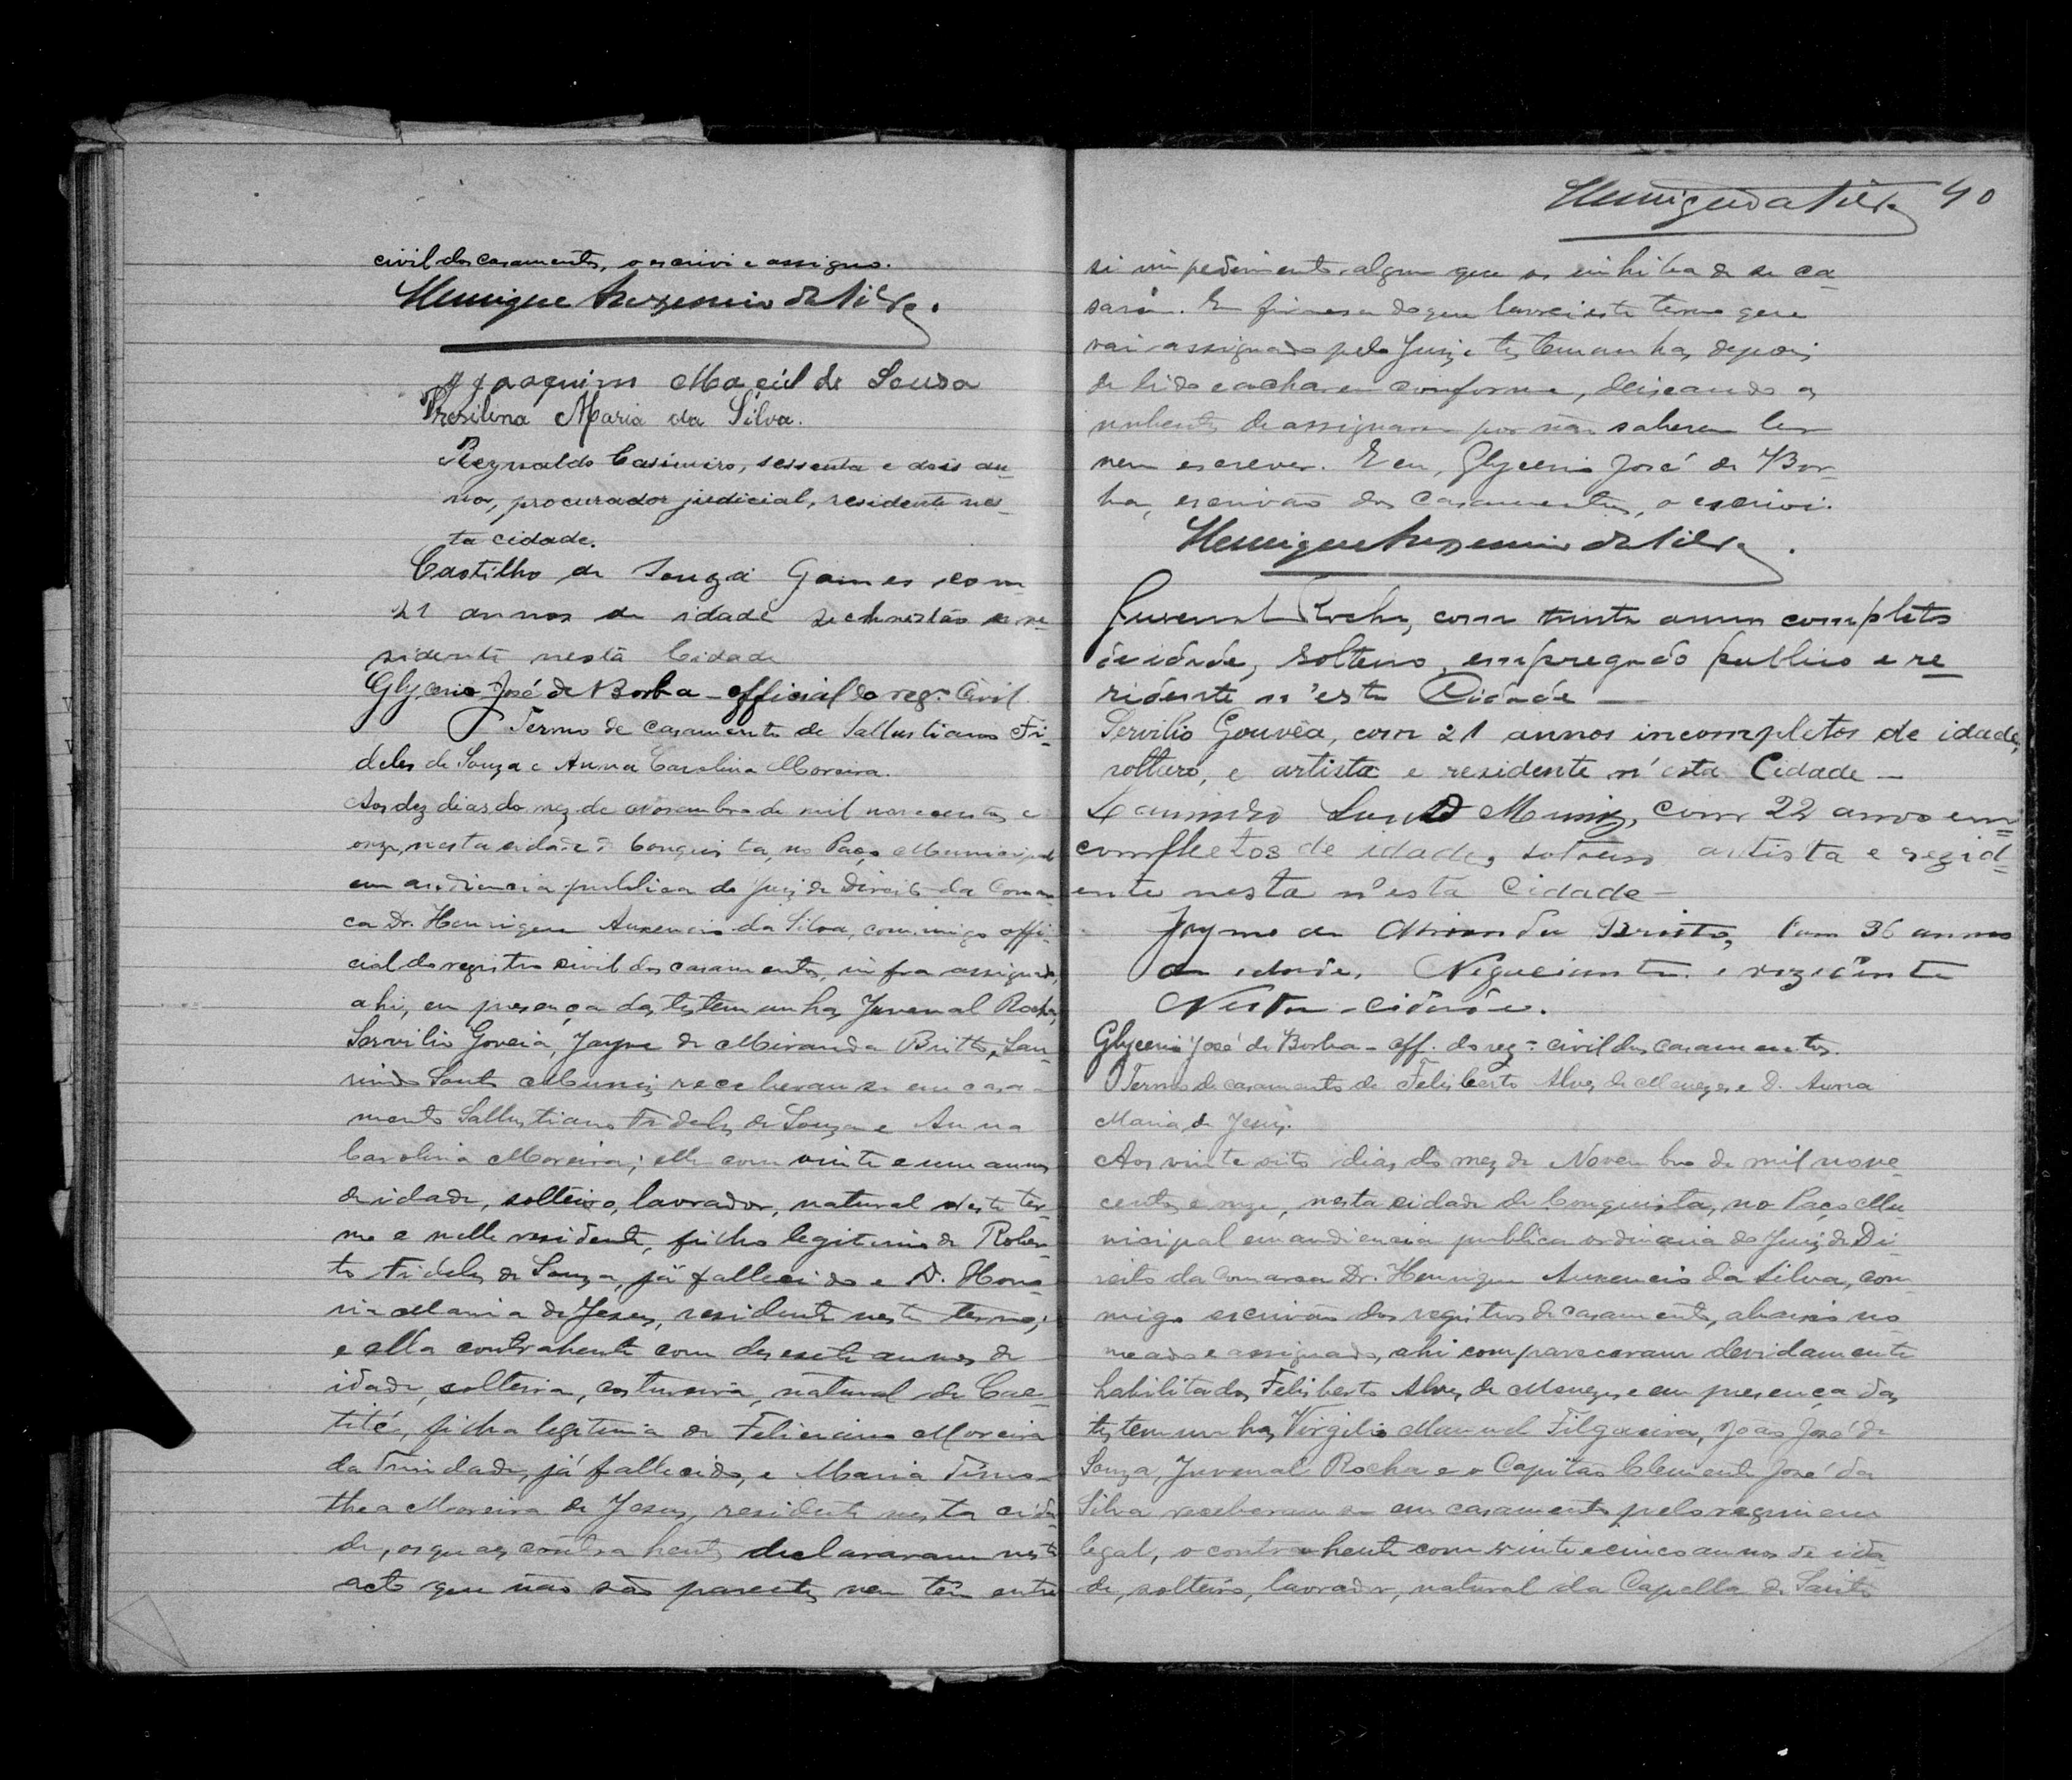 civil dos casamentos, o escrivi e assigno.
Henrique Auxencio da Silva.
Joaquim Maciél de Souza
Presilina Maria da Silva.
Reynaldo Casimiro, sessenta e dois an-
nos, procurador judicial, residente nes-
ta cidade.
Castilho de Souza Gomes com
21 annos de idade e re-
sidente nesta Cidade
Glycerio José de Borba - official do reg.º Civil.
Termo de casamento de Sallustiano Fi-
deles de Souza e Anna Carolina Moreira.
Aos dez dias do mez de Novembro de mil novecentos e
onze, nesta cidade de Conquista, no Paço Municipal
em audiencia publica do Juiz de Direito da Comar-
ca Dr. Henrique Auxencio da Silva, commigo offi-
cial do registro civil dos casamentos, infra assignado,
ahi, em presença das testemunhas Juvenal Rocha,
Servilio Goveia, Jayme de Miranda Britto, Lau-
rindo Santos Muniz receberam-se em casa-
mento Sallustiano Fideles de Souza e Anna
Carolina Moreira; elle com vinte e um annos
de idade, solteiro, lavrador, natural deste ter-
mo e nelle residente, filho legitimo de Rober-
to Fideles de Souza, já fallecido e D. Hono-
ria Maria de Jesus, residente neste termo;
e ella contrahente com desesete annos de
idade, solteira, costureira, natural de Cae-
tité, filha legitima de Feliciano Moreira
da Trindade, já fallecido, e Maria Timo-
thea Moreira de Jesus, residente nesta cida-
de, os quaes contrahentes declararam neste
acto que não são parentes nem têm entre
Henrique da Silva 40
si impedimento algum que os inhiba de se ca-
sarem. Em firmesa do que lavrei este termo que
vai assignado pelo Juiz e testemunhas, depois
de lido e acharem conforme, deixando os
nubentes de assignarem por não saberem ler
nem escrever. E eu, Glycerio José de Bor-
ba, escrivão dos Casamentos, o escrivi.
Henrique Auxencio da Silva.
Juvenal Rocha, com trinta annos completos
de idade, solteiro, empregado publico e re
sidente n'esta Cidade —
Servilio Gouvêa, com 21 annos incompletos de idade,
solteiro, e artista e residente n'esta Cidade —
Laurindo Muniz, com 22 annos em-
complletos de idade, solteiro artista e rezid-
ente nesta n'esta Cidade —
Jayme de Miranda Britto, Com 36 annos
de idade, Negociante e rezidente
Nesta cidade.
Glycerio José de Borba - off. do reg.º civil dos casamentos.
Termo de casamento de Felisberto Alves de Menezes e D. Anna
Maria de Jesus.
Aos vinte oito dias do mez de Novembro de mil nove-
centos e onze, nesta cidade de Conquista, no Paço Mu-
nicipal em audiencia publica ordinaria do Juiz de Di-
reito da Comarca Dr. Henrique Auxencio da Silva, com-
migo escrivão dos registros de casamento, abaixo no-
meado e assignado, ahi compareceram devidamente
habilitados, Felisberto Alves de Menezes e em presença das
testemunhas, Virgilio Manoel Filgueira, João José de
Souza, Juvenal Rocha e o Capitão Clemente José da
Silva receberam-se em casamento pelo regimem
legal, o contrahente com vinte e cinco annos de ida-
de, solteiro, lavrador, natural da Capella de Santo